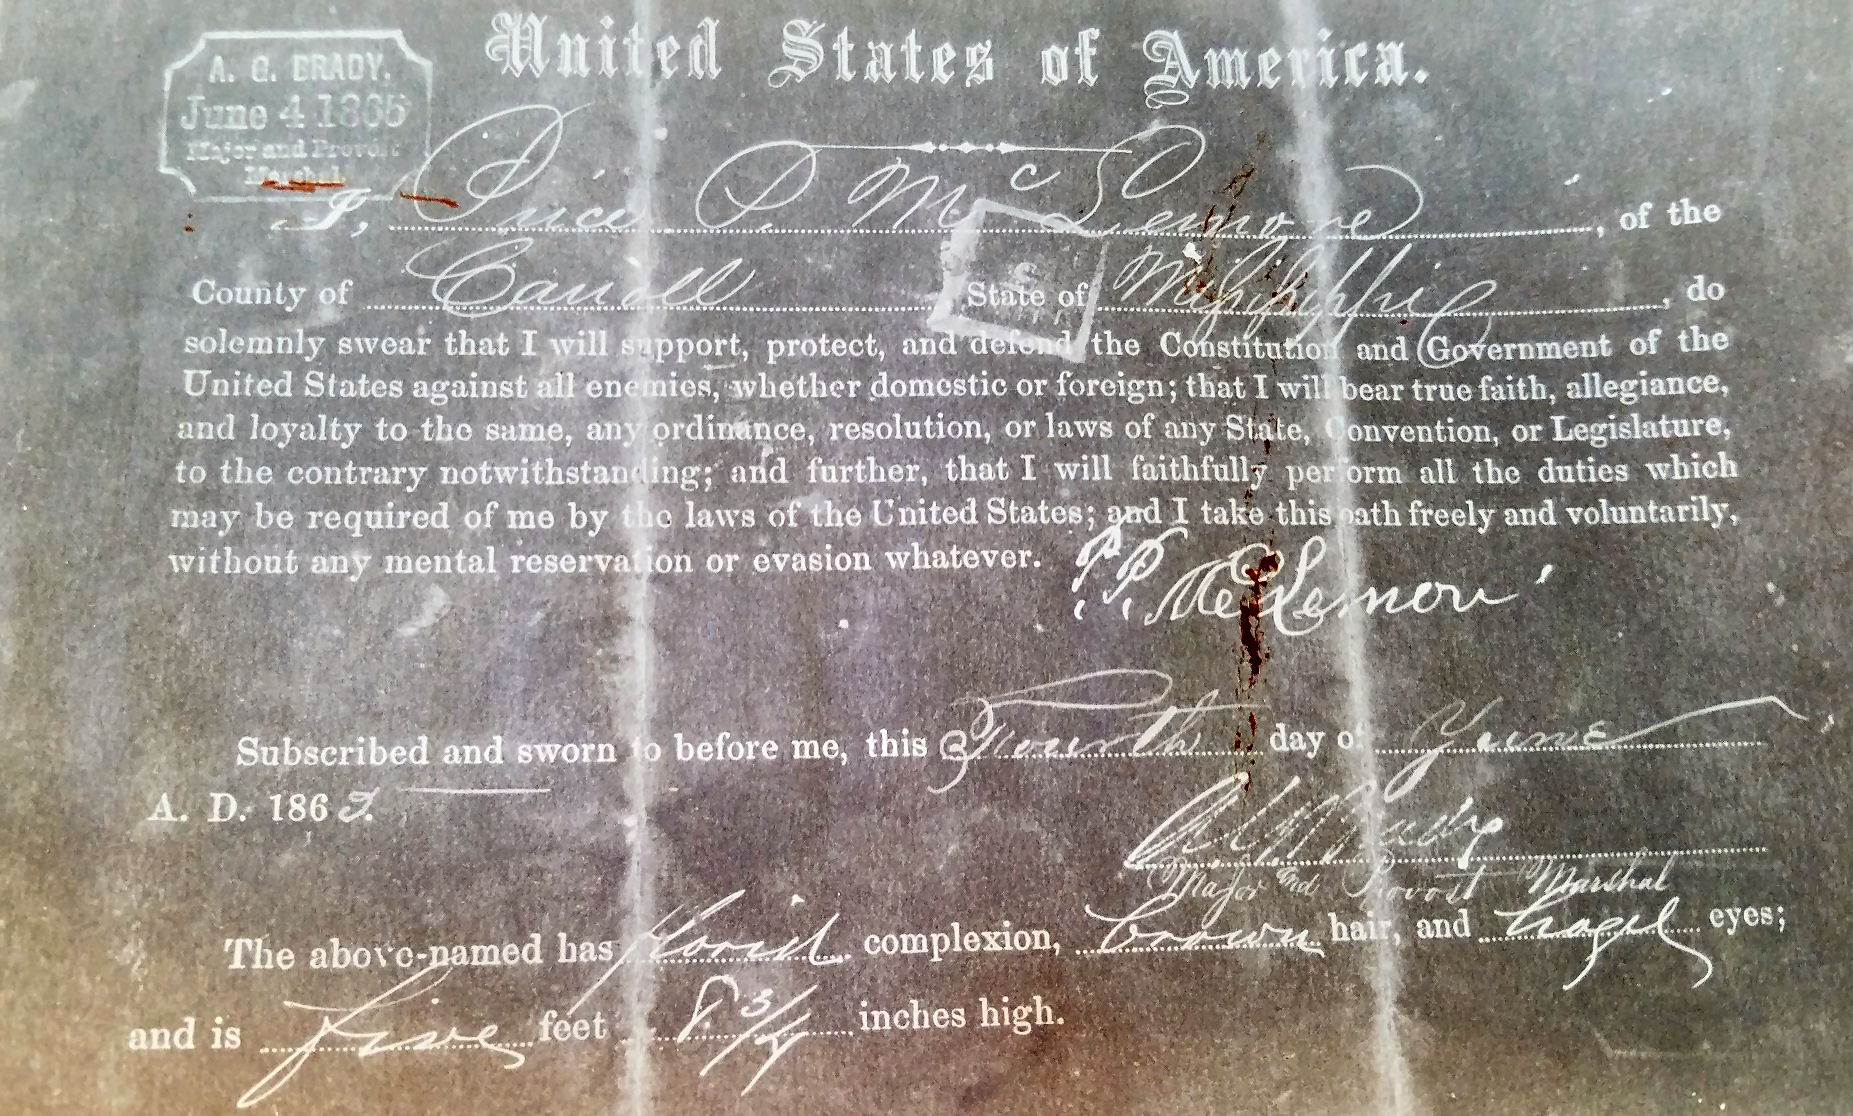 United States of America.
A. G. BRADY.
June 4 1865
Major and Provost
Marshal.
I, Price P. McLemore, of the
County of Carroll State of Mississippi, do
solemnly swear that I will support, protect, and defend the Constitution and Government of the
United States against all enemies, whether domestic or foreign; that I will bear true faith, allegiance,
and loyalty to the same, any ordinance, resolution, or laws of any State, Convention, or Legislature,
to the contrary notwithstanding; and further, that I will faithfully perform all the duties which
may be required of me by the laws of the United States; and I take this oath freely and voluntarily,
without any mental reservation or evasion whatever.
P. P. McLemore
Subscribed and sworn to before me, this Fourth day of June
A. D. 1865.
A G Brady
Major and Provost Marshal
The above-named has florid complexion, brown hair, and hazel eyes;
and is five feet 8 3/4 inches high.